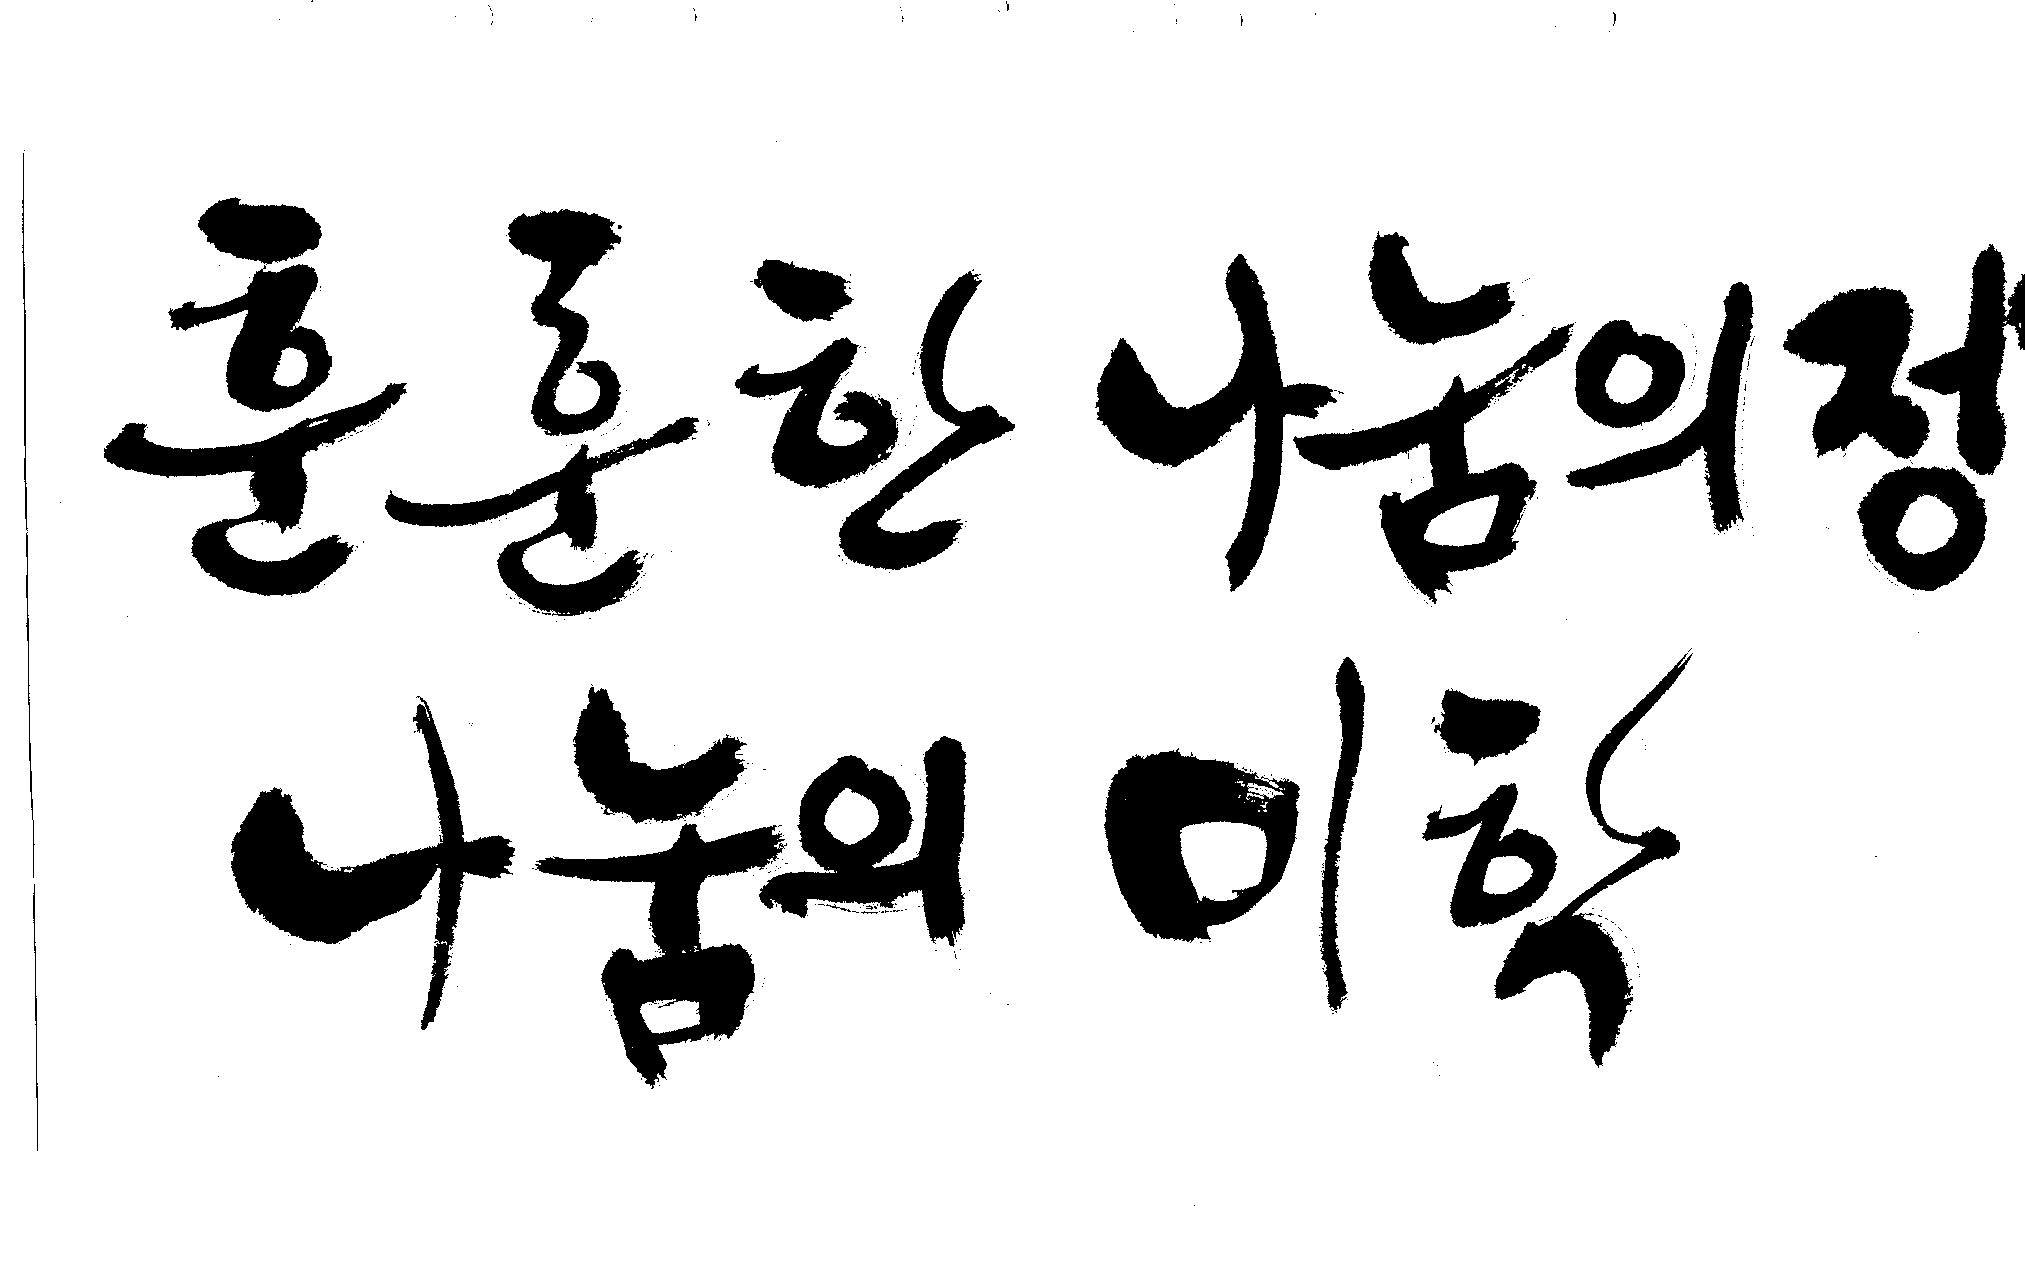 훈훈한 나눔의정
나눔의 미학